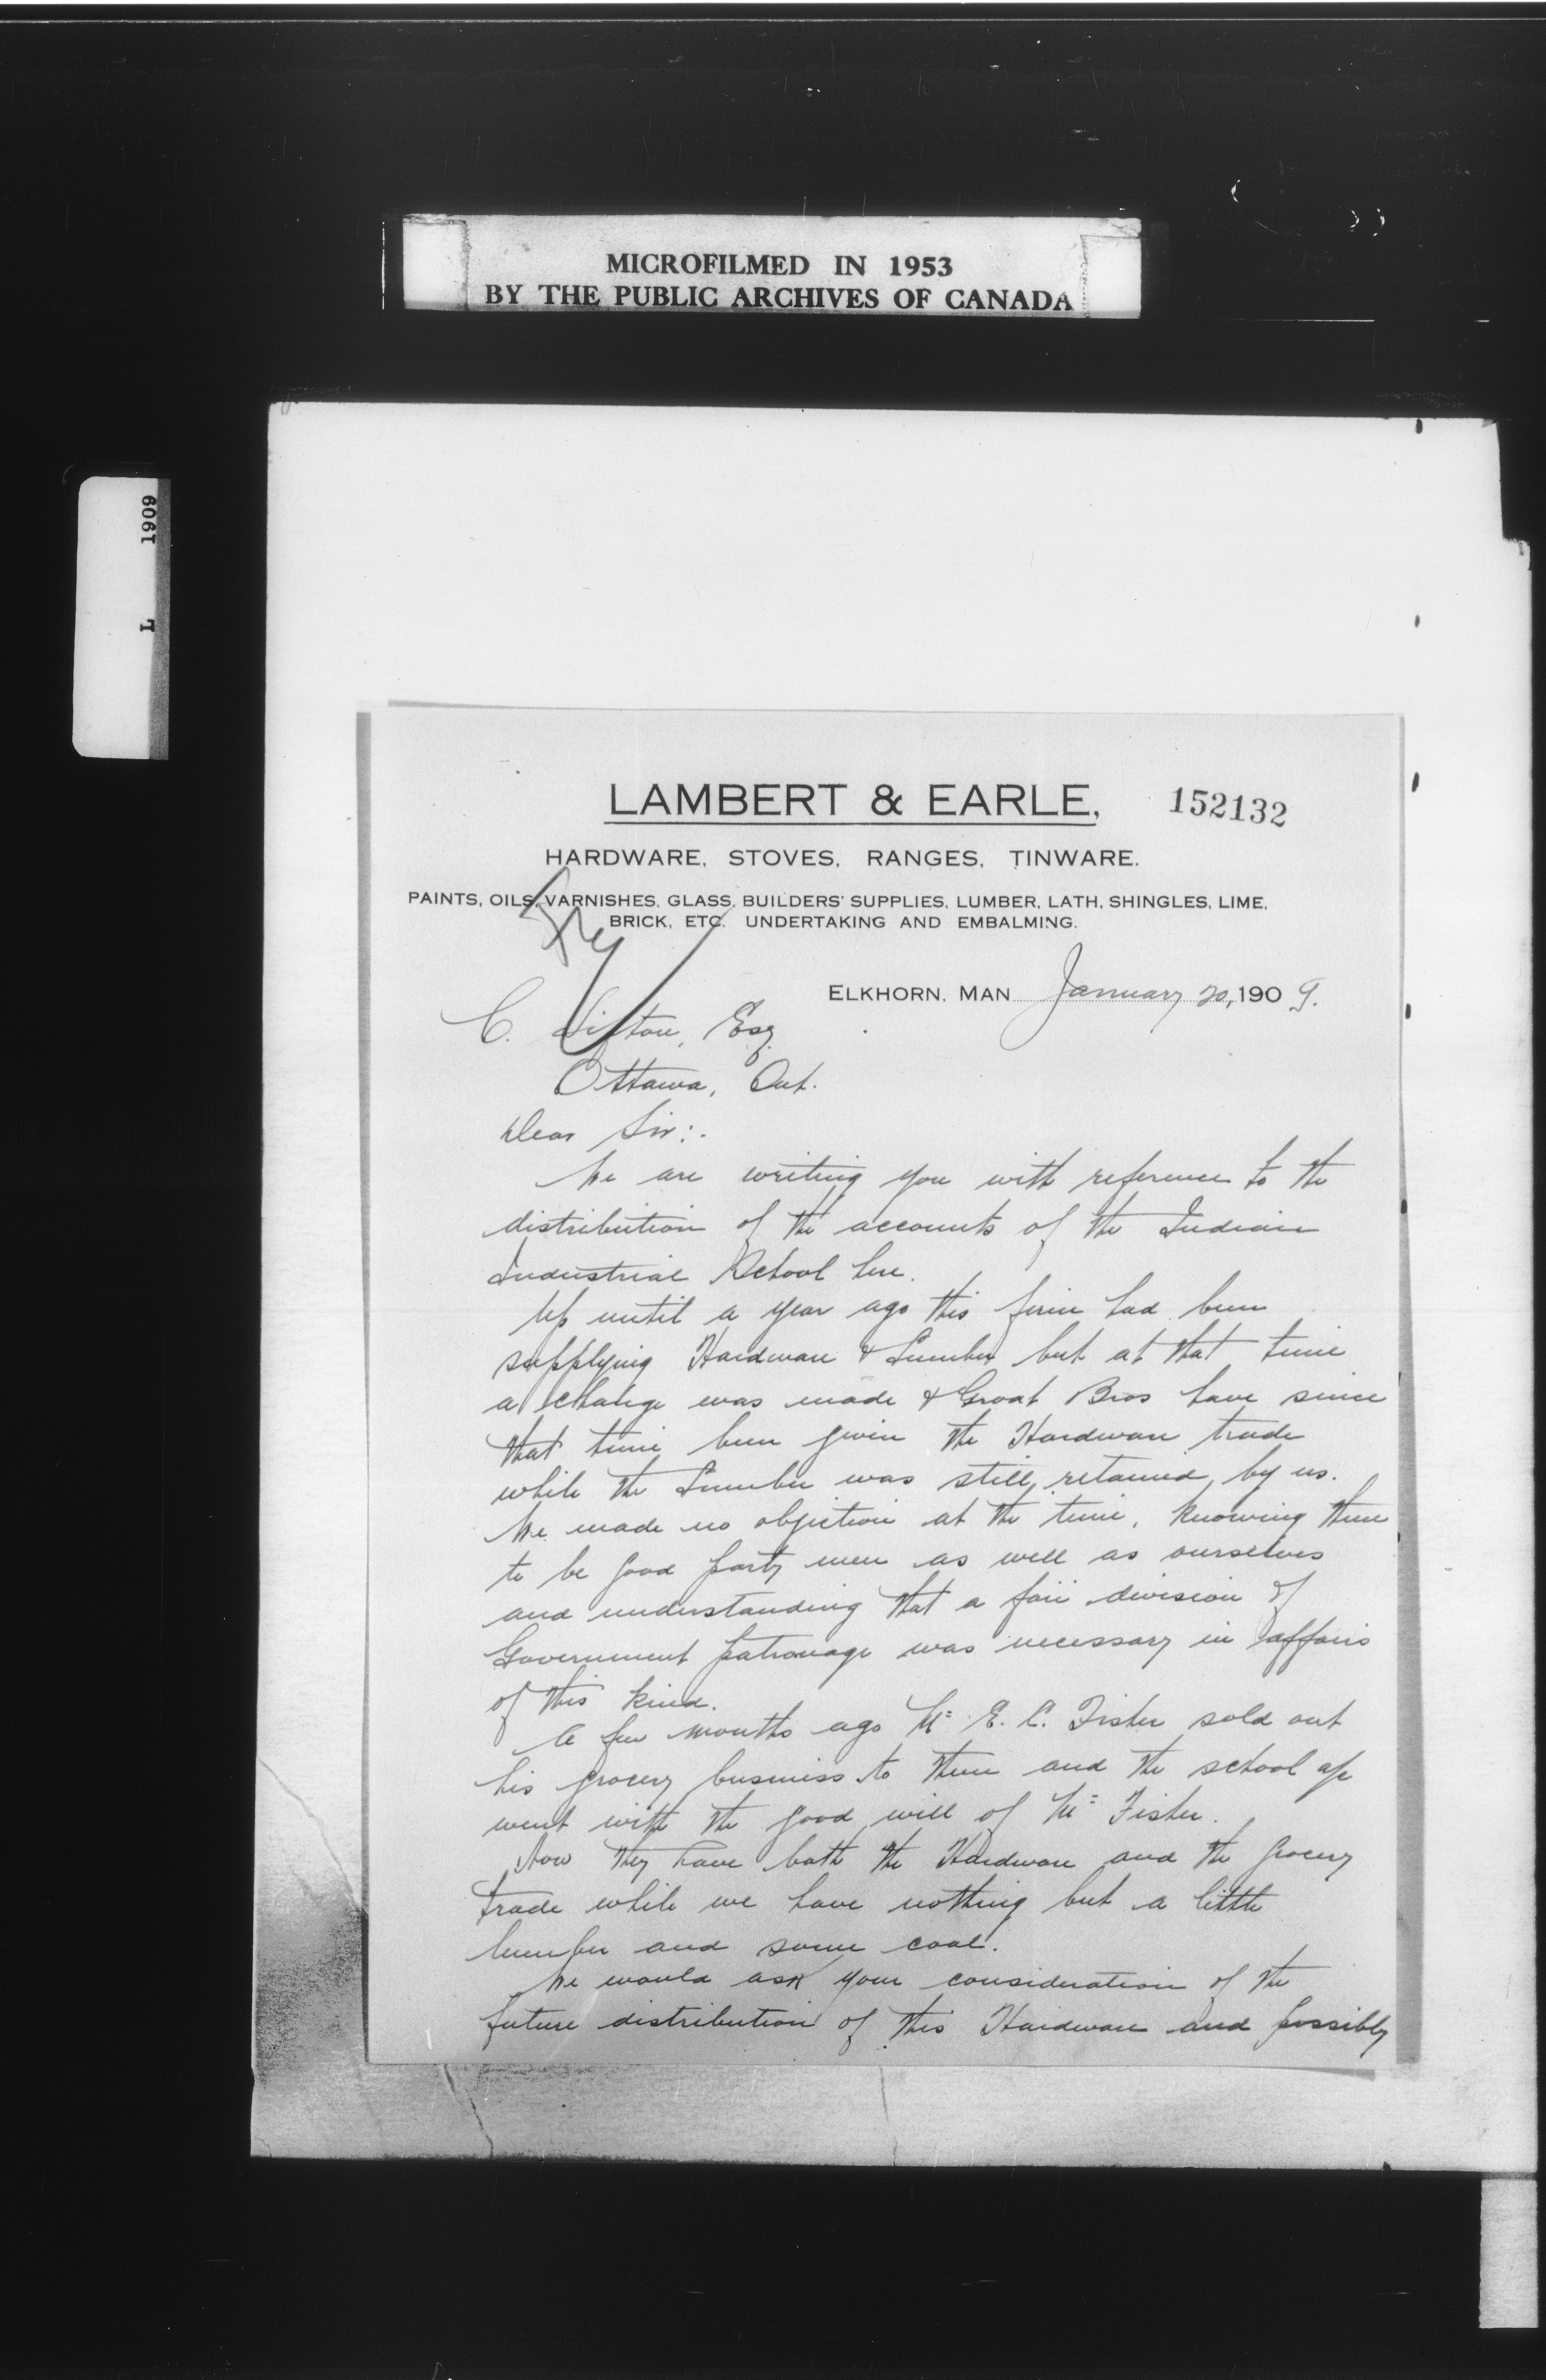 MICROFILMED IN 1953
BY THE PUBLIC ARCHIVES OF CANADA
1909
L
LAMBERT & EARLE,
152132
HARDWARE, STOVES, RANGES, TINWARE.
PAINTS, OILS, VARNISHES, GLASS, BUILDERS' SUPPLIES, LUMBER, LATH, SHINGLES, LIME,
BRICK, ETC. UNDERTAKING AND EMBALMING.
ELKHORN, MAN January 20, 1909.
C. Sifton, Esq
Ottawa, Ont.
Dear Sir:.
We are writing you with reference to the
distribution of the accounts of the Indian
Industrial School here.
Up until a year ago this firm had been
supplying Hardware & Lumber but at that time
a change was made & Groat Bros have since
that time been given the Hardware trade
while the Lumber was still retained by us.
We made no objection at the time, knowing them
to be good party men as well as ourselves
and understanding that a fair division of
Government patronage was necessary in affairs
of this kind.
A few months ago Mr E. C. Fister sold out
his grocery business to them and the school a/c
went with the good will of Mr Fister.
Now they have both the Hardware and the grocery
trade while we have nothing but a little
lumber and some coal.
We would ask your consideration of the
future distribution of this Hardware and possibly